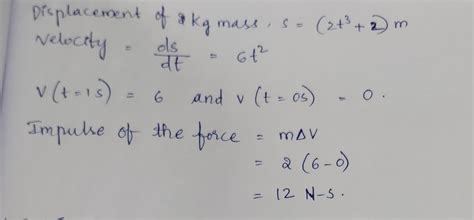 Displacement of 2 kg mass, s = (2t³ + 2) m
Velocity = ds/dt = 6t²
V(t=1s) = 6 and v(t=0s) = 0.
Impulse of the force = mΔV
= 2 (6-0)
= 12 N-S.